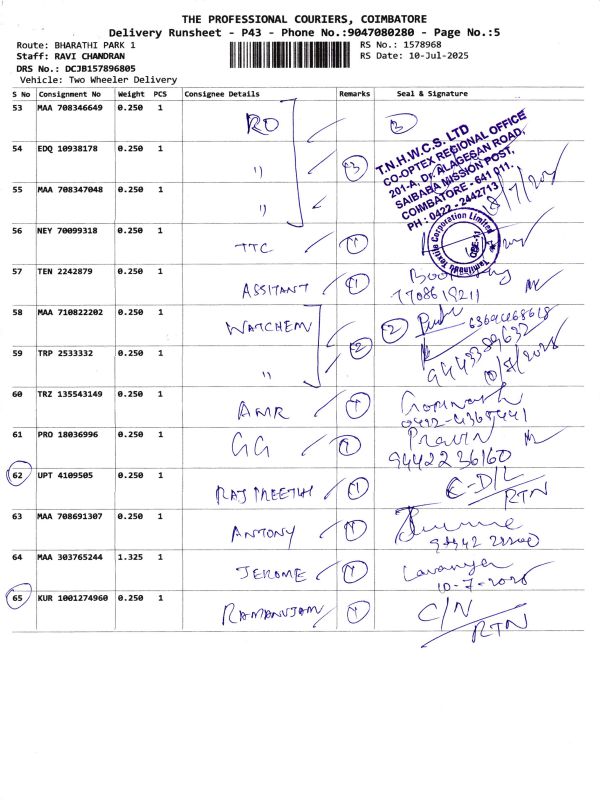 THE PROFESSIONAL COURIERS, COIMBATORE
Delivery Runsheet - P43 - Phone No.:9047080280 - Page No.:5
Route: BHARATHI PARK 1
RS No.: 1578968
Staff: RAVI CHANDRAN
RS Date: 10-Jul-2025
DRS No.: DCJB157896805
Vehicle: Two Wheeler Delivery
S No Consignment No Weight PCS Consignee Details Remarks Seal & Signature
53 MAA 708346649 0.250 1 RO 3
54 EDQ 10938178 0.250 1 " 3
55 MAA 708347048 0.250 1 "
T.N.H.W.C.S. LTD
CO-OPTEX REGIONAL OFFICE
201-A, Dr. ALAGESAN ROAD,
SAIBABA MISSION POST,
COIMBATORE - 641 011.
PH : 0422 - 2442713
56 NEY 70099318 0.250 1 TTC 1
Tamilnadu Textile Corporation Limited
57 TEN 2242879 0.250 1 ASSITANT 1
7708619211
58 MAA 710822202 0.250 1 WATCHEM 2
9443389632
59 TRP 2533332 0.250 1 " 2
60 TRZ 135543149 0.250 1 AMR 1 Gopinath
0422-4365441
61 PRO 18036996 0.250 1 GG 1 Pravin
9442236160
62 UPT 4109505 0.250 1 RAJ PREETHI 1 C-D/L
RTN
63 MAA 708691307 0.250 1 ANTONY 1
64 MAA 303765244 1.325 1 JEROME 1 Lavanya
10-7-2025
65 KUR 1001274960 0.250 1 RAMANUJAM 1 C/N
RTN